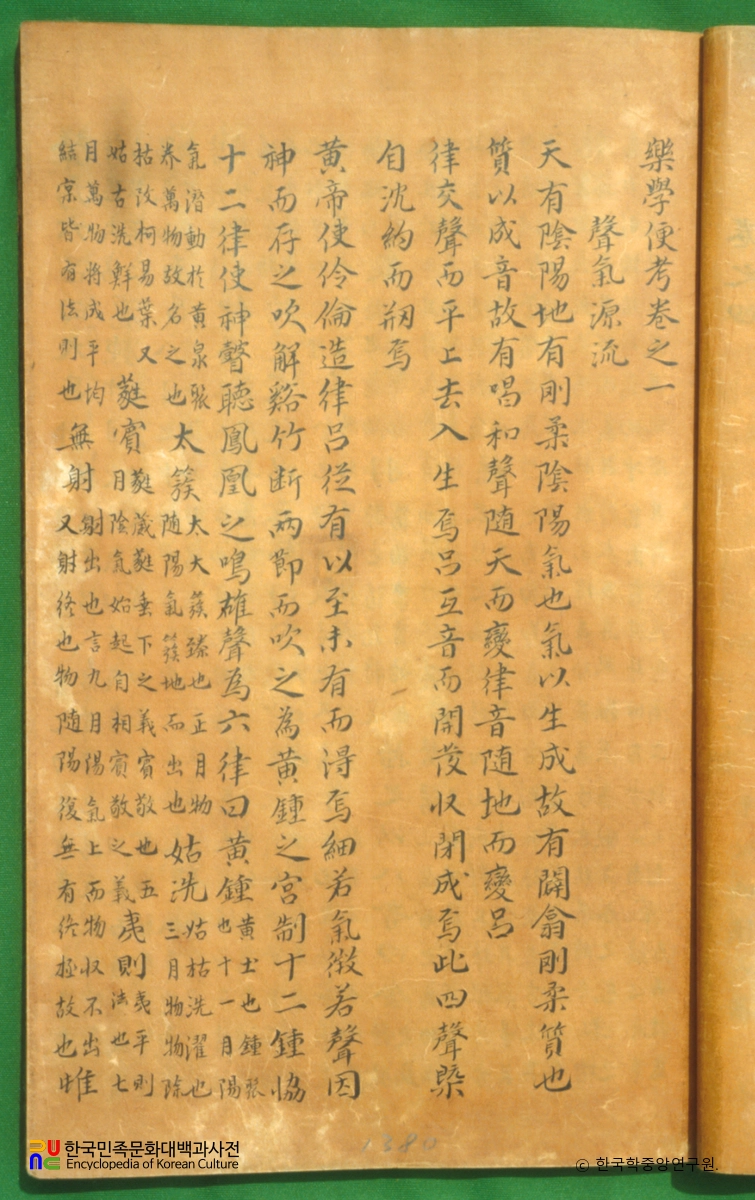 樂學便考卷之一
聲氣源流
天有陰陽地有剛柔陰陽氣也氣以生成故有闢翕剛柔質也
質以成音故有唱和聲随天而變律音随地而變呂
律交聲而平上去入生焉呂互音而開發収閉成焉此四聲槩
自沈約而刱焉
黃帝使伶倫造律呂從有以至未有而得焉細若氣微若聲因
神而存之吹解谿竹断兩節而吹之為黃鍾之宮制十二鍾恊
十二律使神瞽聽鳳凰之鳴雄聲為六律曰黃鍾黃土也鍾聚也十一月陽
氣潛動於黃泉聚养萬物故名之也太簇太大簇臻也正月物随陽氣簇地而出也姑洗姑枯洗濯也三月物物除
枯改柯易葉又姑古洗鮮也蕤賓蕤葳蕤垂下之義賓敬也五月陰氣始起自相賓敬之義夷則夷平則法也七
月萬物将成平均結宲皆有法則也無射射出也言九月陽氣上而物収不出又射終也物随陽復無有終極故也惟
1380
한국민족문화대백과사전
Encyclopedia of Korean Culture
© 한국학중앙연구원.